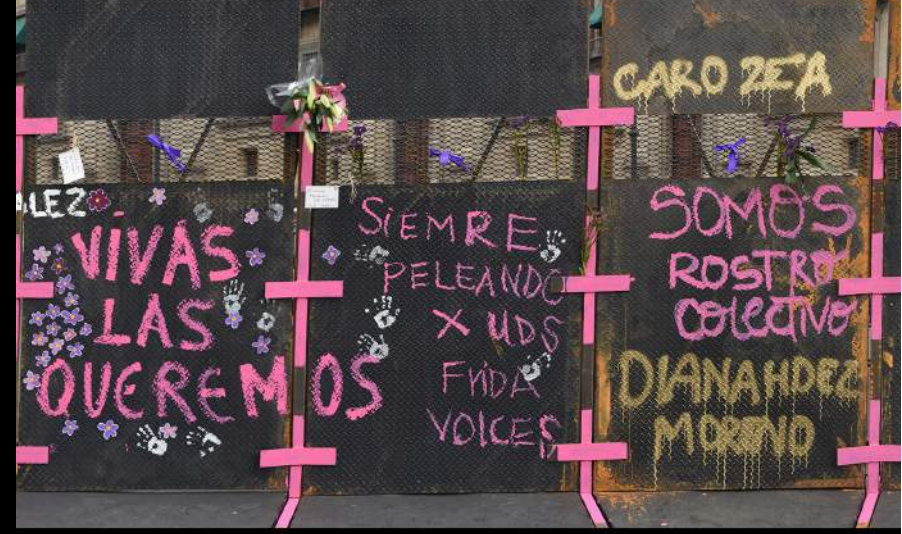 CARO ZEA
LEZ
VIVAS
LAS
QUEREMOS
SiEMRE
PELEANDO
X UDS
FRIDA
VOICES
SOMOS
ROSTRO
COLECTIVO
DIANA HDEZ
MORENO